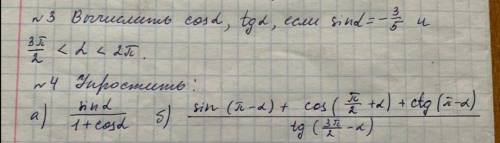 №3 Вычислить cosα, tgα, если sinα = -3/5 и
3π/2 < α < 2π.
№4 Упростить:
а) sinα/(1+cosα) б) (sin(π-α) + cos(π/2+α) + ctg(π-α))/tg(3π/2-α)